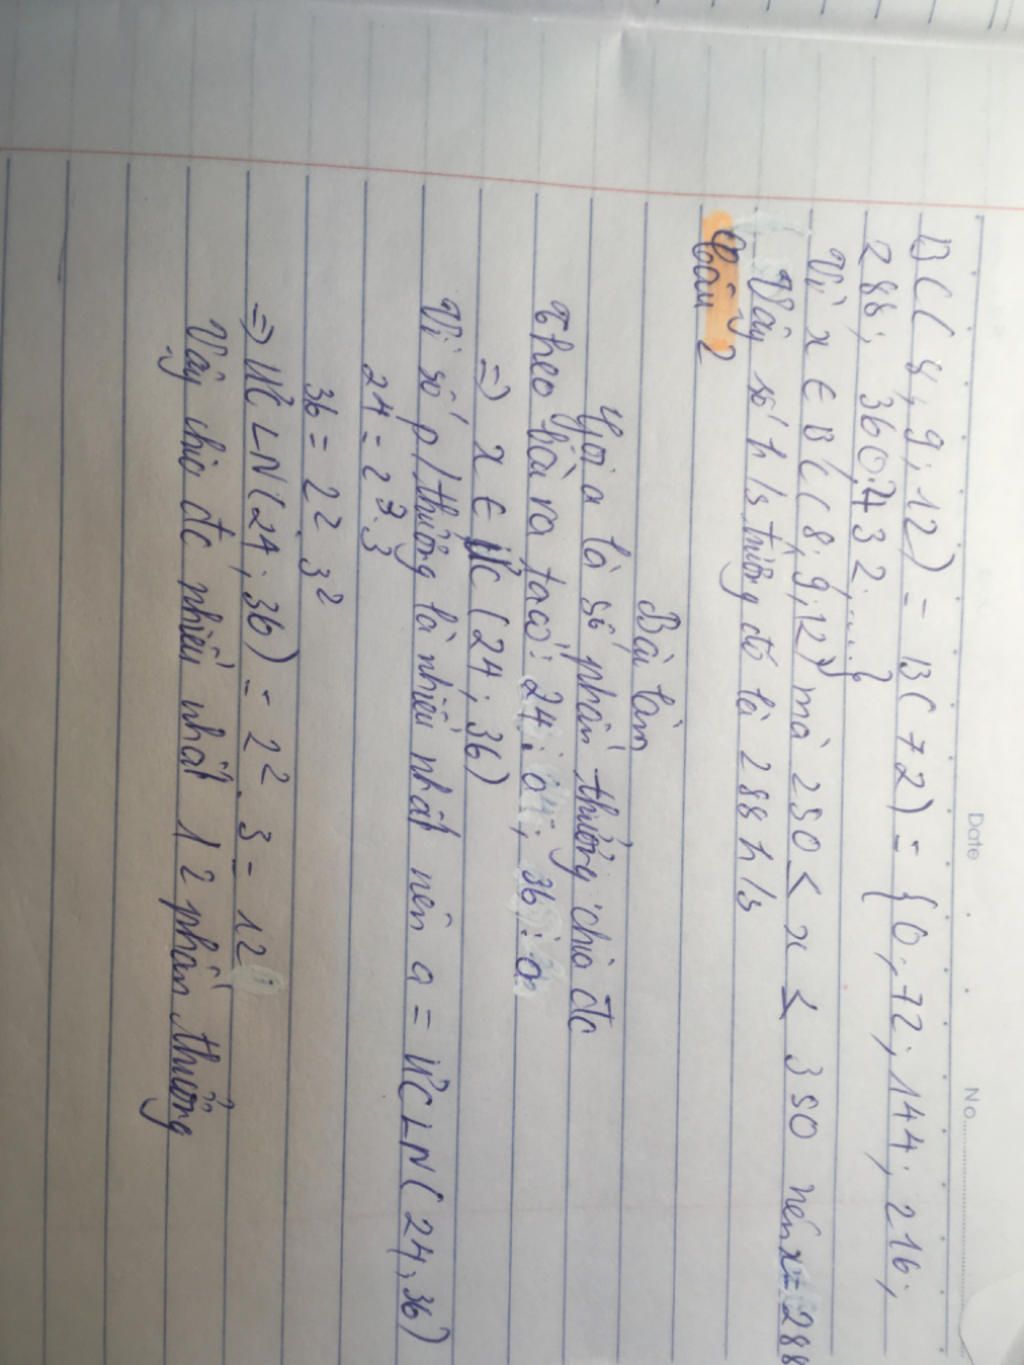 Date No.
BC( 8, 9, 12) = BC(72) = {0; 72; 144; 216;
288; 360; 432;.....}
Vì x ∈ BC( 8; 9; 12) mà 250 < x < 350 nên x = 288
Vậy số h/s trường đó là 288 h/s
Câu 2
Bài làm
Gọi a là số phần thưởng chia đc
Theo bài ra ta có: 24 : a ; 36 : a
=> x ∈ ƯC (24; 36)
Vì số p/thưởng là nhiều nhất nên a = ƯCLN(24, 36)
24 = 2³.3
36 = 2².3²
=> ƯCLN(24; 36) = 2².3 = 12
Vậy chia đc nhiều nhất 12 phần thưởng